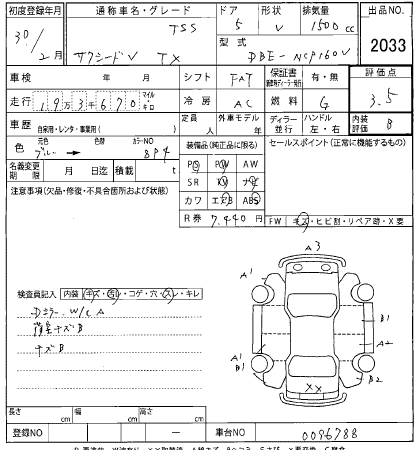 初度登録年月 通称車名・グレード ドア 形状 排気量 出品NO.
30/ TSS 5 V 1500 cc
2月 サクシードV TX 型式 DBE-NCP160V 2033
車検 年 月 シフト FAT 保証書 有・無 評価点
走行 19万3千670 マイル・キロ 冷房 AC 燃料 G 3.5
車歴 自家用・レンタ・事業用( ) 定員 人 外車モデル 年 ディーラー 並行 ハンドル 左・右 内装評価 B
色 元色 ブルー → 色替 カラーNO 8P4 装備品(純正品に限る) セールスポイント(正常に機能するもの)
PS PW AW
名義変更期限 月 日迄 積載 t SR ナビ
注意事項(欠品・修復・不具合箇所および状態) カワ エアB ABS
R券 7,440円 FW キズ・ヒビ割・リペア跡・X要
A3
検査員記入 内装 キズ・コゲ・穴・スレ・キレ
Dミラー W/C A
荷室キズB
キズB
A' B1
A2
A' B1 B2
XX
長さ cm 幅 cm 高さ cm
登録NO ー 車台NO 0096788